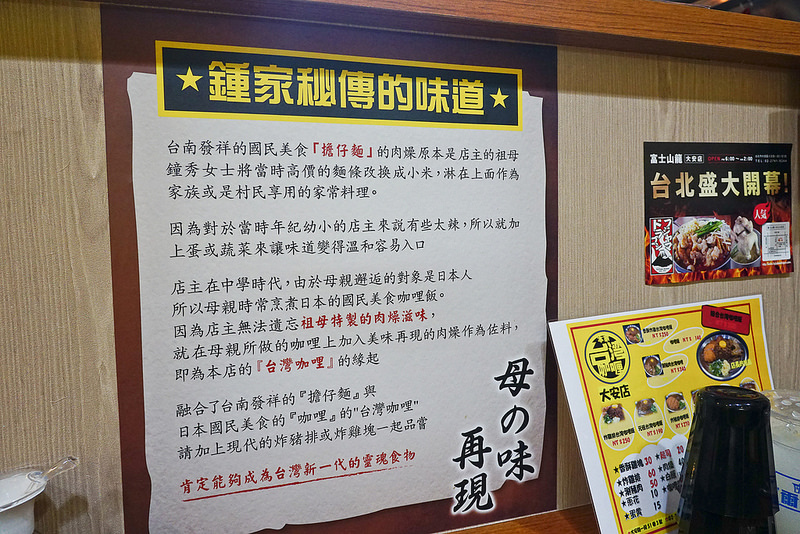 ★鍾家秘傳的味道★
台南發祥的國民美食『擔仔麵』的肉燥原本是店主的祖母
鐘秀女士將當時高價的麵條改換成小米，淋在上面作為
家族或是村民享用的家常料理。
因為對於當時年紀幼小的店主來說有些太辣，所以就加
上蛋或蔬菜來讓味道變得溫和容易入口
店主在中學時代，由於母親邂逅的對象是日本人
所以母親時常烹煮日本的國民美食咖哩飯。
因為店主無法遺忘祖母特製的肉燥滋味，
就在母親所做的咖哩上加入美味再現的肉燥作為佐料，
即為本店的『台灣咖哩』的緣起
融合了台南發祥的『擔仔麵』與
日本國民美食的『咖哩』的"台灣咖哩"
請加上現代的炸豬排或炸雞塊一起品嘗
肯定能夠成為台灣新一代的靈魂食物
母の味
再現
富士山龍 大安店 OPEN
台北盛大開幕!
人気
台灣咖哩
大安店
NT$250
NT$140
NT$250
NT$190
★香酥雞塊 30
★炸雞排 60
★涮豬肉 50
★蔥花 10
★蛋黃 15